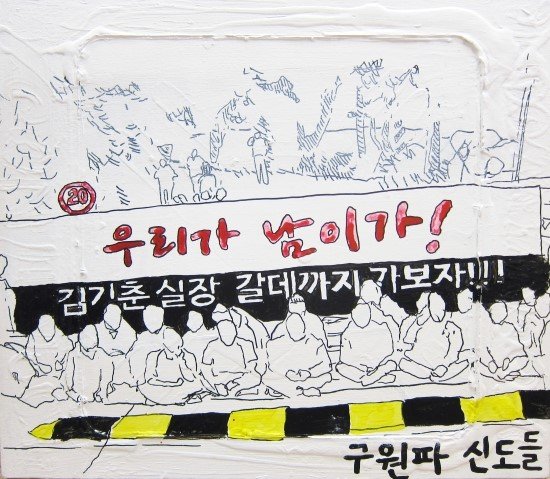 20
우리가 남이가!
김기춘 실장 갈데까지 가보자!!!
구원파 신도들